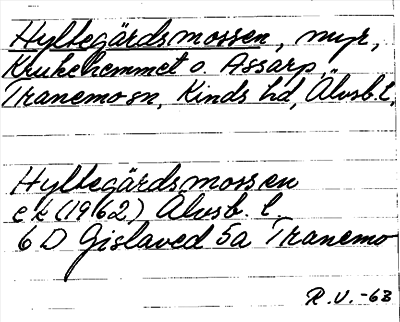 Hyltegärdsmossen, myr,
Krukehemmet o. Assarp,
Tranemo sn, Kinds hd, Älvsb. l.
Hyltegärdsmossen
ek (1962) Älvsb. l.
6 D Gislaved 5a Tranemo
R.V. -63